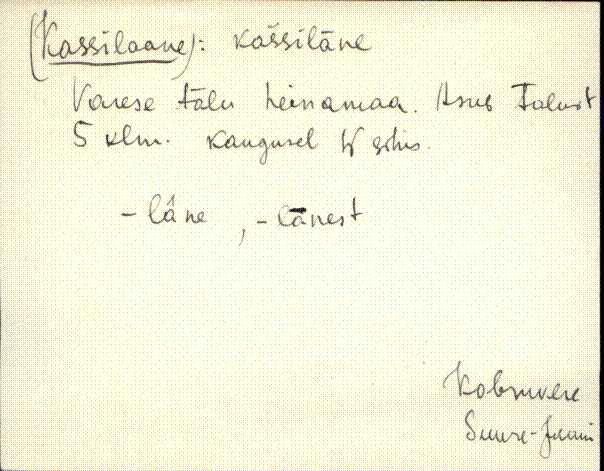 (Kassilaane): kaššilāne
Varese tālu heinamaa. Asub Talust
5 klm. kaugusel W sihis.
- lâne, - lānest
Kobruvere
Suure-Jaani